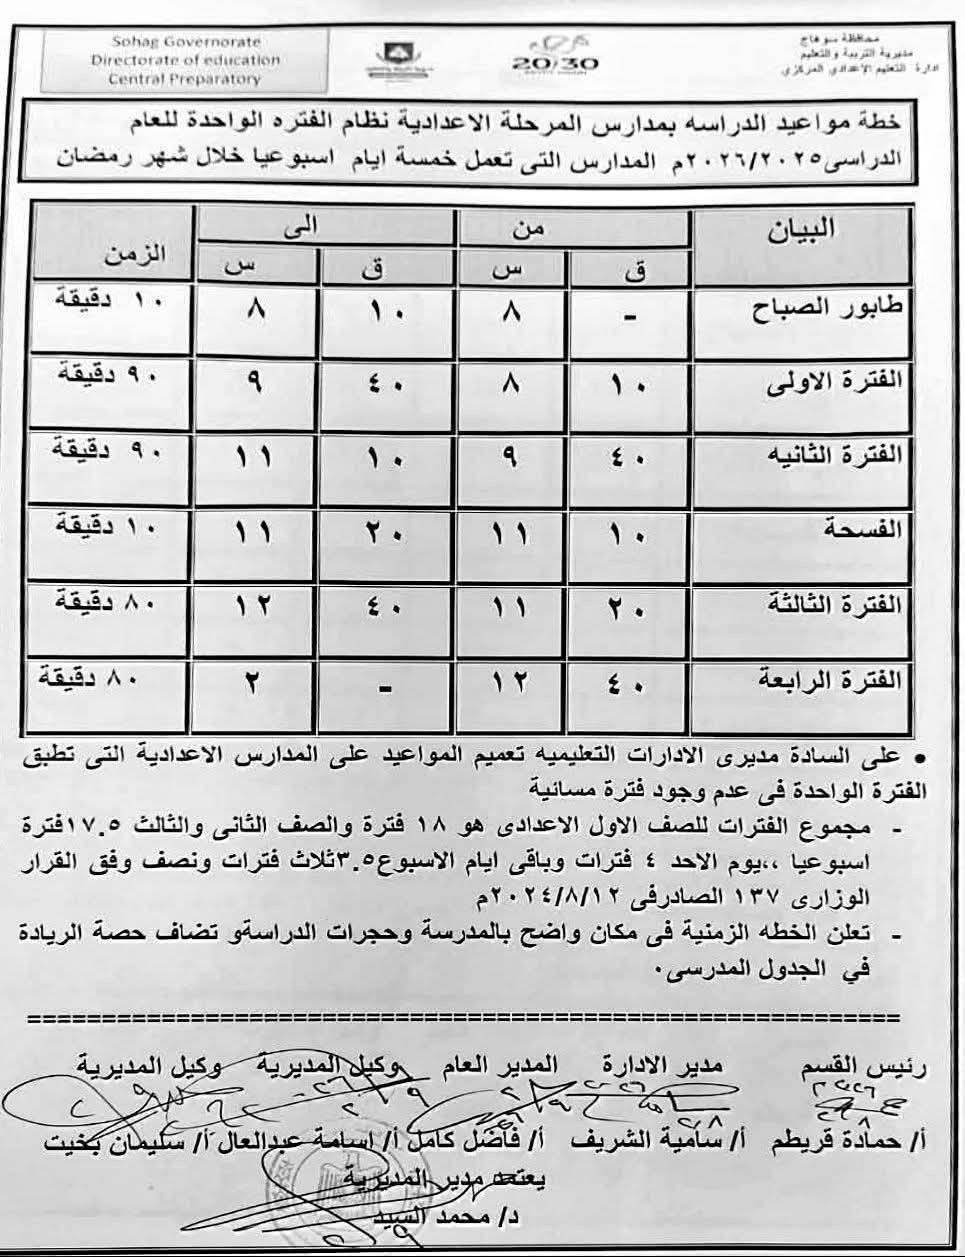 Sohag Governorate
Directorate of education
Central Preparatory
20/30
محافظة سوهاج
مديرية التربية والتعليم
ادارة التعليم الاعدادي المركزي
خطة مواعيد الدراسه بمدارس المرحلة الاعدادية نظام الفتره الواحدة للعام
الدراسى٢٠٢٦/٢٠٢٥م المدارس التى تعمل خمسة ايام اسبوعيا خلال شهر رمضان
البيان من الى الزمن
ق س ق س
طابور الصباح - ٨ ١٠ ٨ ١٠ دقيقة
الفترة الاولى ١٠ ٨ ٤٠ ٩ ٩٠ دقيقة
الفترة الثانيه ٤٠ ٩ ١٠ ١١ ٩٠ دقيقة
الفسحة ١٠ ١١ ٢٠ ١١ ١٠ دقيقة
الفترة الثالثة ٢٠ ١١ ٤٠ ١٢ ٨٠ دقيقة
الفترة الرابعة ٤٠ ١٢ - ٢ ٨٠ دقيقة
• على السادة مديرى الادارات التعليميه تعميم المواعيد على المدارس الاعدادية التى تطبق
الفترة الواحدة فى عدم وجود فترة مسائية
- مجموع الفترات للصف الاول الاعدادى هو ١٨ فترة والصف الثانى والثالث ١٧.٥فترة
اسبوعيا ،،يوم الاحد ٤ فترات وباقى ايام الاسبوع٣.٥ثلاث فترات ونصف وفق القرار
الوزارى ١٣٧ الصادرفى ٢٠٢٤/٨/١٢م
- تعلن الخطه الزمنية فى مكان واضح بالمدرسة وحجرات الدراسةو تضاف حصة الريادة
في الجدول المدرسى٠
رئيس القسم مدير الادارة المدير العام وكيل المديرية وكيل المديرية
أ/ حمادة قريطم أ/ سامية الشريف أ/ فاضل كامل أ/ اسامة عبدالعال أ/ سليمان بخيت
يعتمد مدير المديرية
د/ محمد السيد